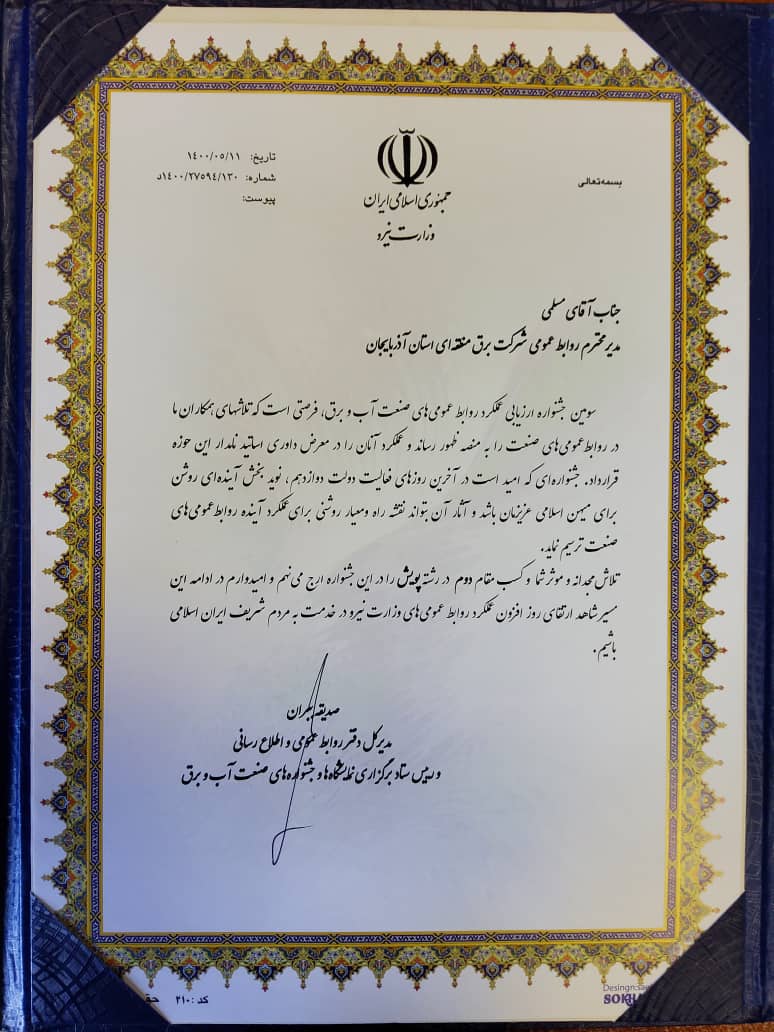 بسمه‌تعالی
جمهوری اسلامی ایران
وزارت نیرو
تاریخ: ۱۴۰۰/۰۵/۱۱
شماره: ۱۴۰۰/۲۷۵۹۴/۱۳۰د
پیوست:
جناب آقای مسلمی
مدیر محترم روابط عمومی شرکت برق منطقه ای استان آذربایجان
سومین جشنواره ارزیابی عملکرد روابط عمومی‌های صنعت آب و برق، فرصتی است که تلاشهای همکاران ما
در روابط عمومی‌های صنعت را به منصه ظهور رساند و عملکرد آنان را در معرض داوری اساتید نامدار این حوزه
قرار داد. جشنواره‌ای که امید است در آخرین روزهای فعالیت دولت دوازدهم، نوید بخش آینده‌ای روشن
برای میهن اسلامی عزیزمان باشد و آثار آن بتواند نقشه راه ومعیار روشنی برای عملکرد آینده روابط عمومی‌های
صنعت ترسیم نماید.
تلاش مجدانه و موثر شما و کسب مقام دوم در رشته پویش را در این جشنواره ارج می‌نهم و امیدوارم در ادامه این
مسیر شاهد ارتقای روز افزون عملکرد روابط عمومی‌های وزارت نیرو در خدمت به مردم شریف ایران اسلامی
باشیم.
صدیقه ببران
مدیرکل دفتر روابط عمومی و اطلاع رسانی
و رییس ستاد برگزاری نمایشگاه‌ها و جشنواره‌های صنعت آب و برق
کد: ۲۱۰
Desingn: